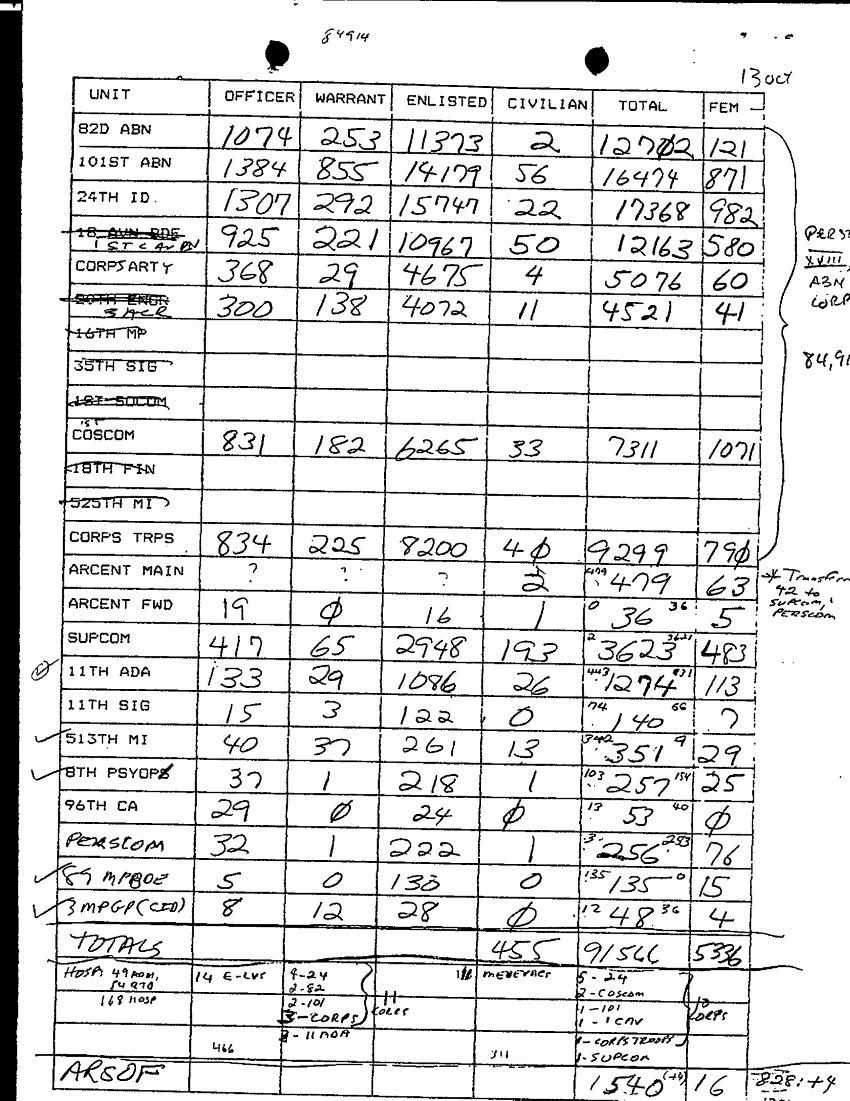 84914
13 oct
UNIT OFFICER WARRANT ENLISTED CIVILIAN TOTAL FEM
82D ABN 1074 253 11373 2 12702 121
101ST ABN 1384 855 14179 56 16474 871
24TH ID. 1307 292 15747 22 17368 982
18 AVN BDE
1ST CAV DN 925 221 10967 50 12163 580
CORPSARTY 368 29 4675 4 5076 60
20TH ENGR
3 ACR 300 138 4072 11 4521 41
16TH MP
35TH SIG
1ST SOCOM
1ST
COSCOM 831 182 6265 33 7311 1071
18TH FIN
525TH MI
CORPS TRPS 834 225 8200 40 9299 790
XVIII
ABN
CORP
84,91
ARCENT MAIN ? ? ? 2 479 479 63
* Transfer
42 to
SUPCOM,
PERSCOM
ARCENT FWD 19 0 16 1 0 36 36 5
SUPCOM 417 65 2948 193 2 3623 3621 483
11TH ADA 133 29 1086 26 443 1274 831 113
11TH SIG 15 3 122 0 74 140 66 7
513TH MI 40 37 261 13 342 351 9 29
8TH PSYOPS 37 1 218 1 103 257 154 25
96TH CA 29 0 24 0 13 53 40 0
PERSCOM 32 1 222 1 3 256 253 76
89 MPBDE 5 0 130 0 135 135 0 15
3 MPGP (CID) 8 12 28 0 12 48 36 4
TOTALS 455 91566 5336
HOSP: 49 ADM, 14 E-LVS 4-24 MEDEVACS 5-24
54 RTD 2-82 2-COSCOM
168 HOSP 2-101 11 1-101 10
3-CORPS CORPS 1-1CAV CORPS
3-11ADA 1-CORPS TROOPS
466 311 1-SUPCOM
ARSOF 1540 (+4) 16 828: +4